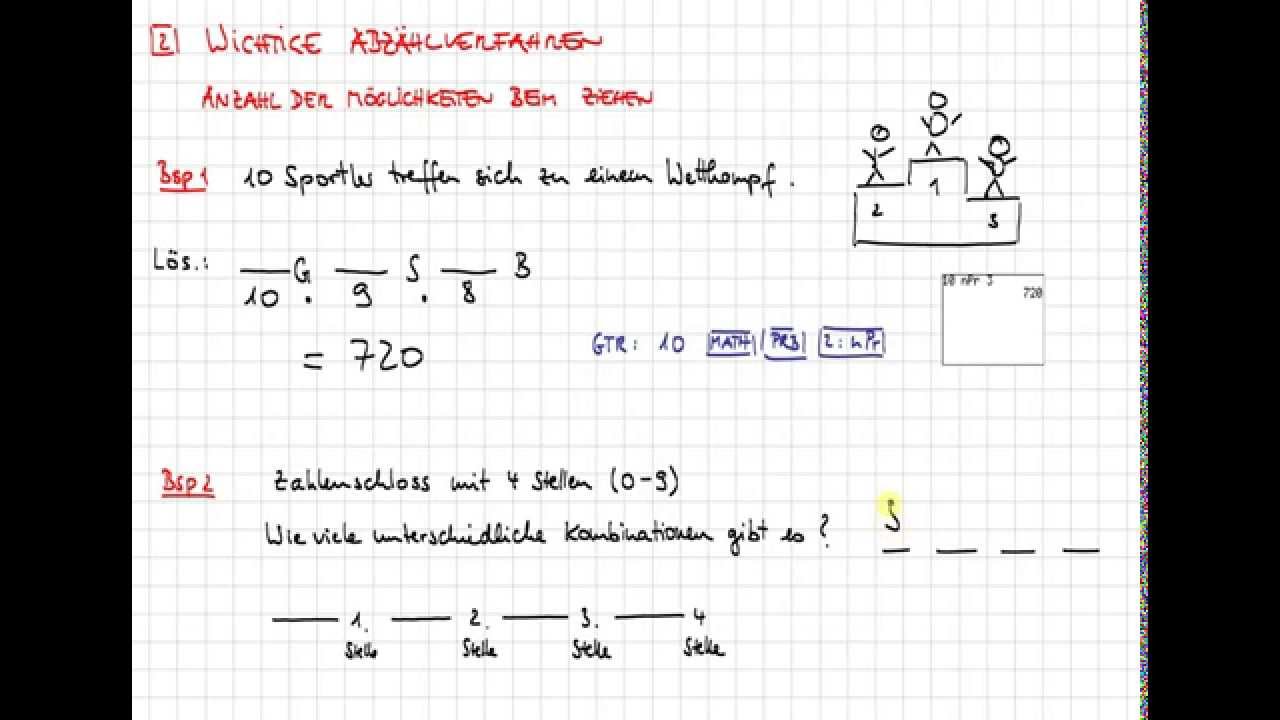 2 WICHTIGE ABZÄHLVERFAHREN
ANZAHL DER MÖGLICHKEITEN BEIM ZIEHEN
Bsp 1 10 Sportler treffen sich zu einem Wettkampf.
2 1 3
Lös.: __ G __ S __ B
10 . 9 . 8
= 720
GTR: 10 MATH PRB 2: nPr
10 nPr 3
720
Bsp 2 Zahlenschloss mit 4 Stellen (0-9)
Wie viele unterschiedliche Kombinationen gibt es?
__ 1. __ 2. __ 3. __ 4
Stelle Stelle Stelle Stelle